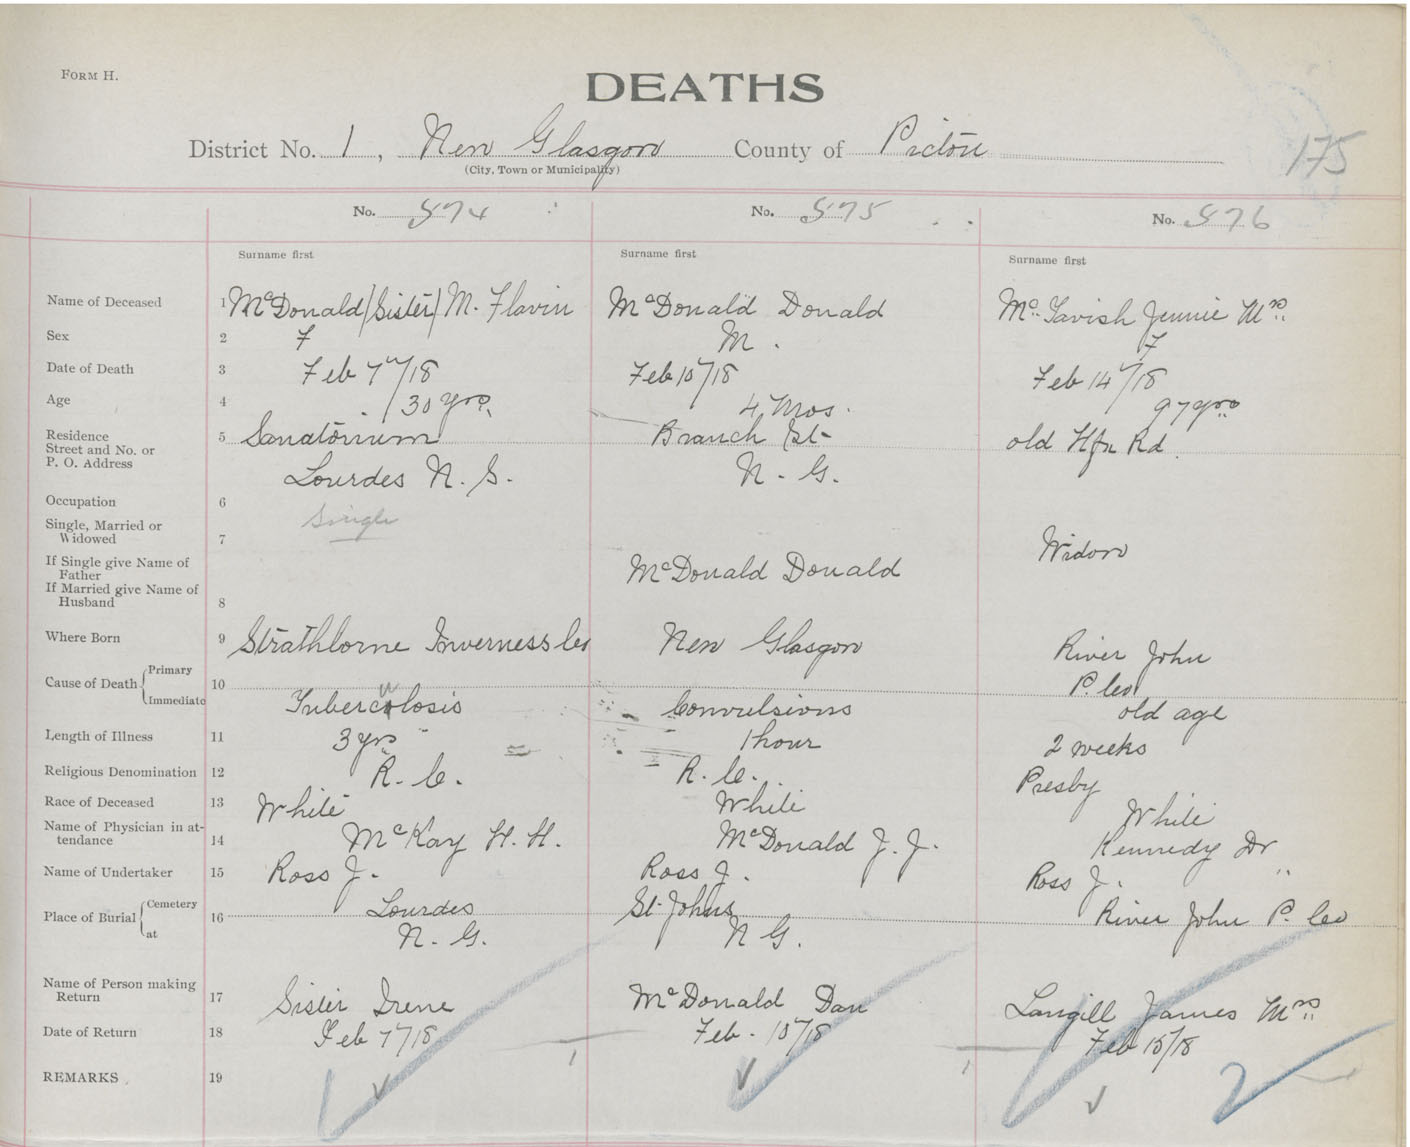 FORM H.
DEATHS
District No. 1, New Glasgow County of Pictou
(City, Town or Municipality)
175
No. 574 No. 575 No. 576
Surname first Surname first Surname first
Name of Deceased 1 McDonald (Sister) M. Flavin McDonald Donald McTavish Jennie Mrs
Sex 2 F M. F
Date of Death 3 Feb 7th/18 Feb 10th/18 Feb 14th/18
Age 4 30 yrs. 4 Mos. 97 yrs
Residence
Street and No. or
P. O. Address
5 Sanatorium Branch St- old Hfx Rd.
Lourdes N. S. N. G.
Occupation 6
Single
Single, Married or
Widowed 7 Widow
If Single give Name of
Father McDonald Donald
If Married give Name of
Husband 8
Where Born 9 Strathlorne Inverness Co New Glasgow River John
P. Co
Cause of Death { Primary
Immediate 10 Tuberculosis Convulsions old age
Length of Illness 11 3 yrs 1 hour 2 weeks
Religious Denomination 12 R. C. R. C. Presby
Race of Deceased 13 White White White
Name of Physician in at-
tendance 14 McKay H. H. McDonald J. J. Kennedy Dr
Name of Undertaker 15 Ross J. Ross J. Ross J.
Place of Burial { Cemetery
at 16 Lourdes St. Johns River John P. Co
N. G. N G.
Name of Person making
Return 17 Sister Irene McDonald Dan Langill James Mrs
Date of Return 18 Feb 7/18 Feb. 10/18 Feb 15/18
REMARKS 19
2